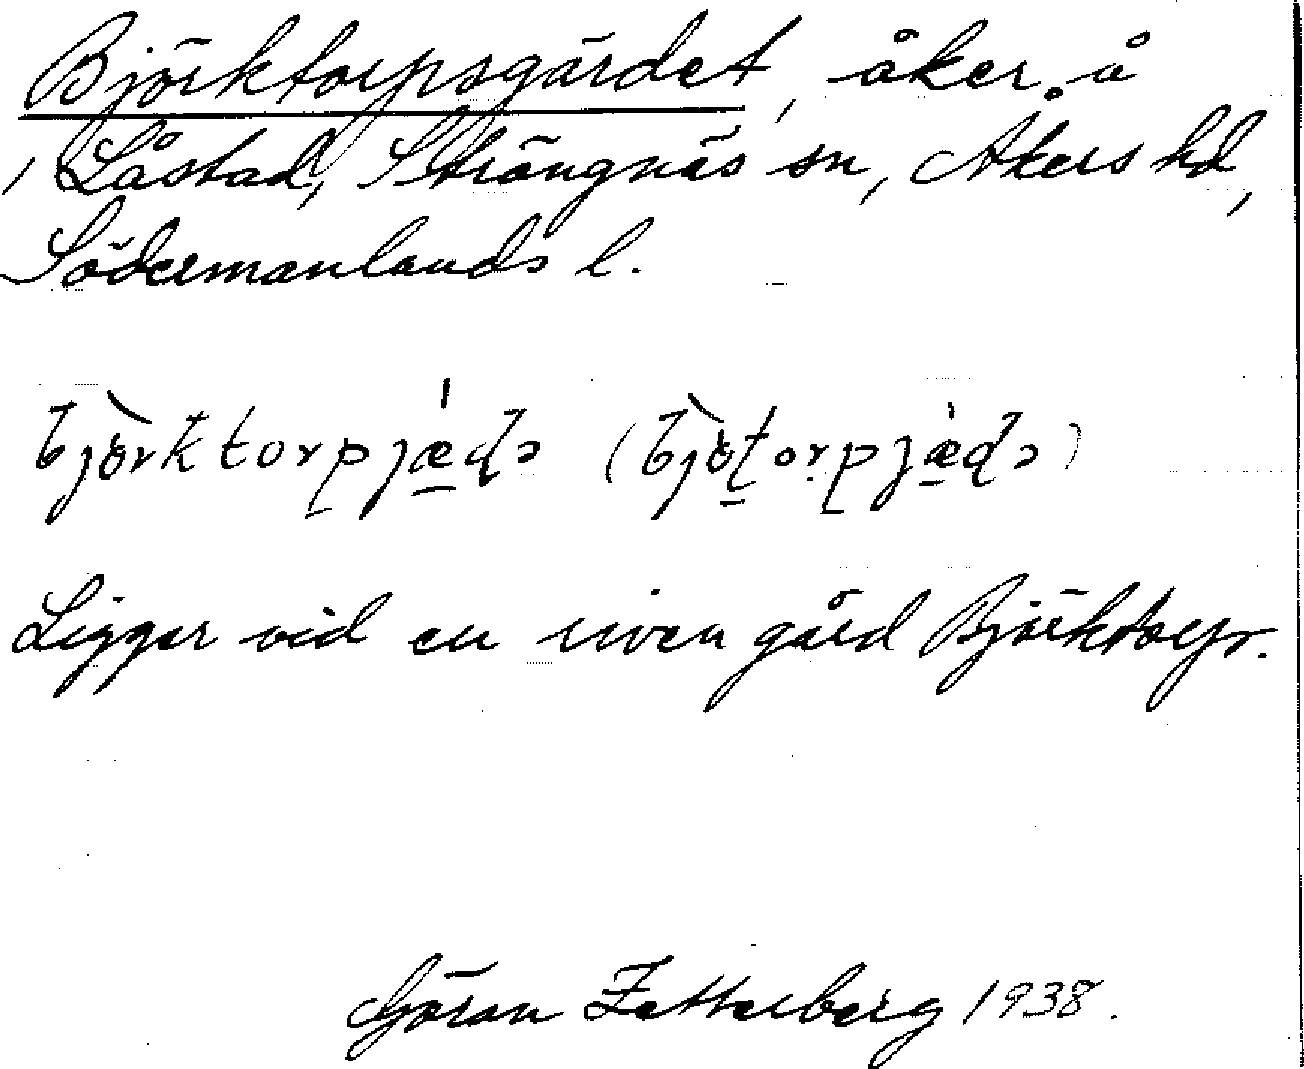 Björktorpsgärdet, åker å
Låstad, Strängnäs sn, Åkers hd,
Södermanlands l.
bjòrktorpjǽ̲ɖə (bjòt̲orpjǽ̲ɖə)
Ligger vid en riven gård Björktorp.
Göran Zetterberg 1938.